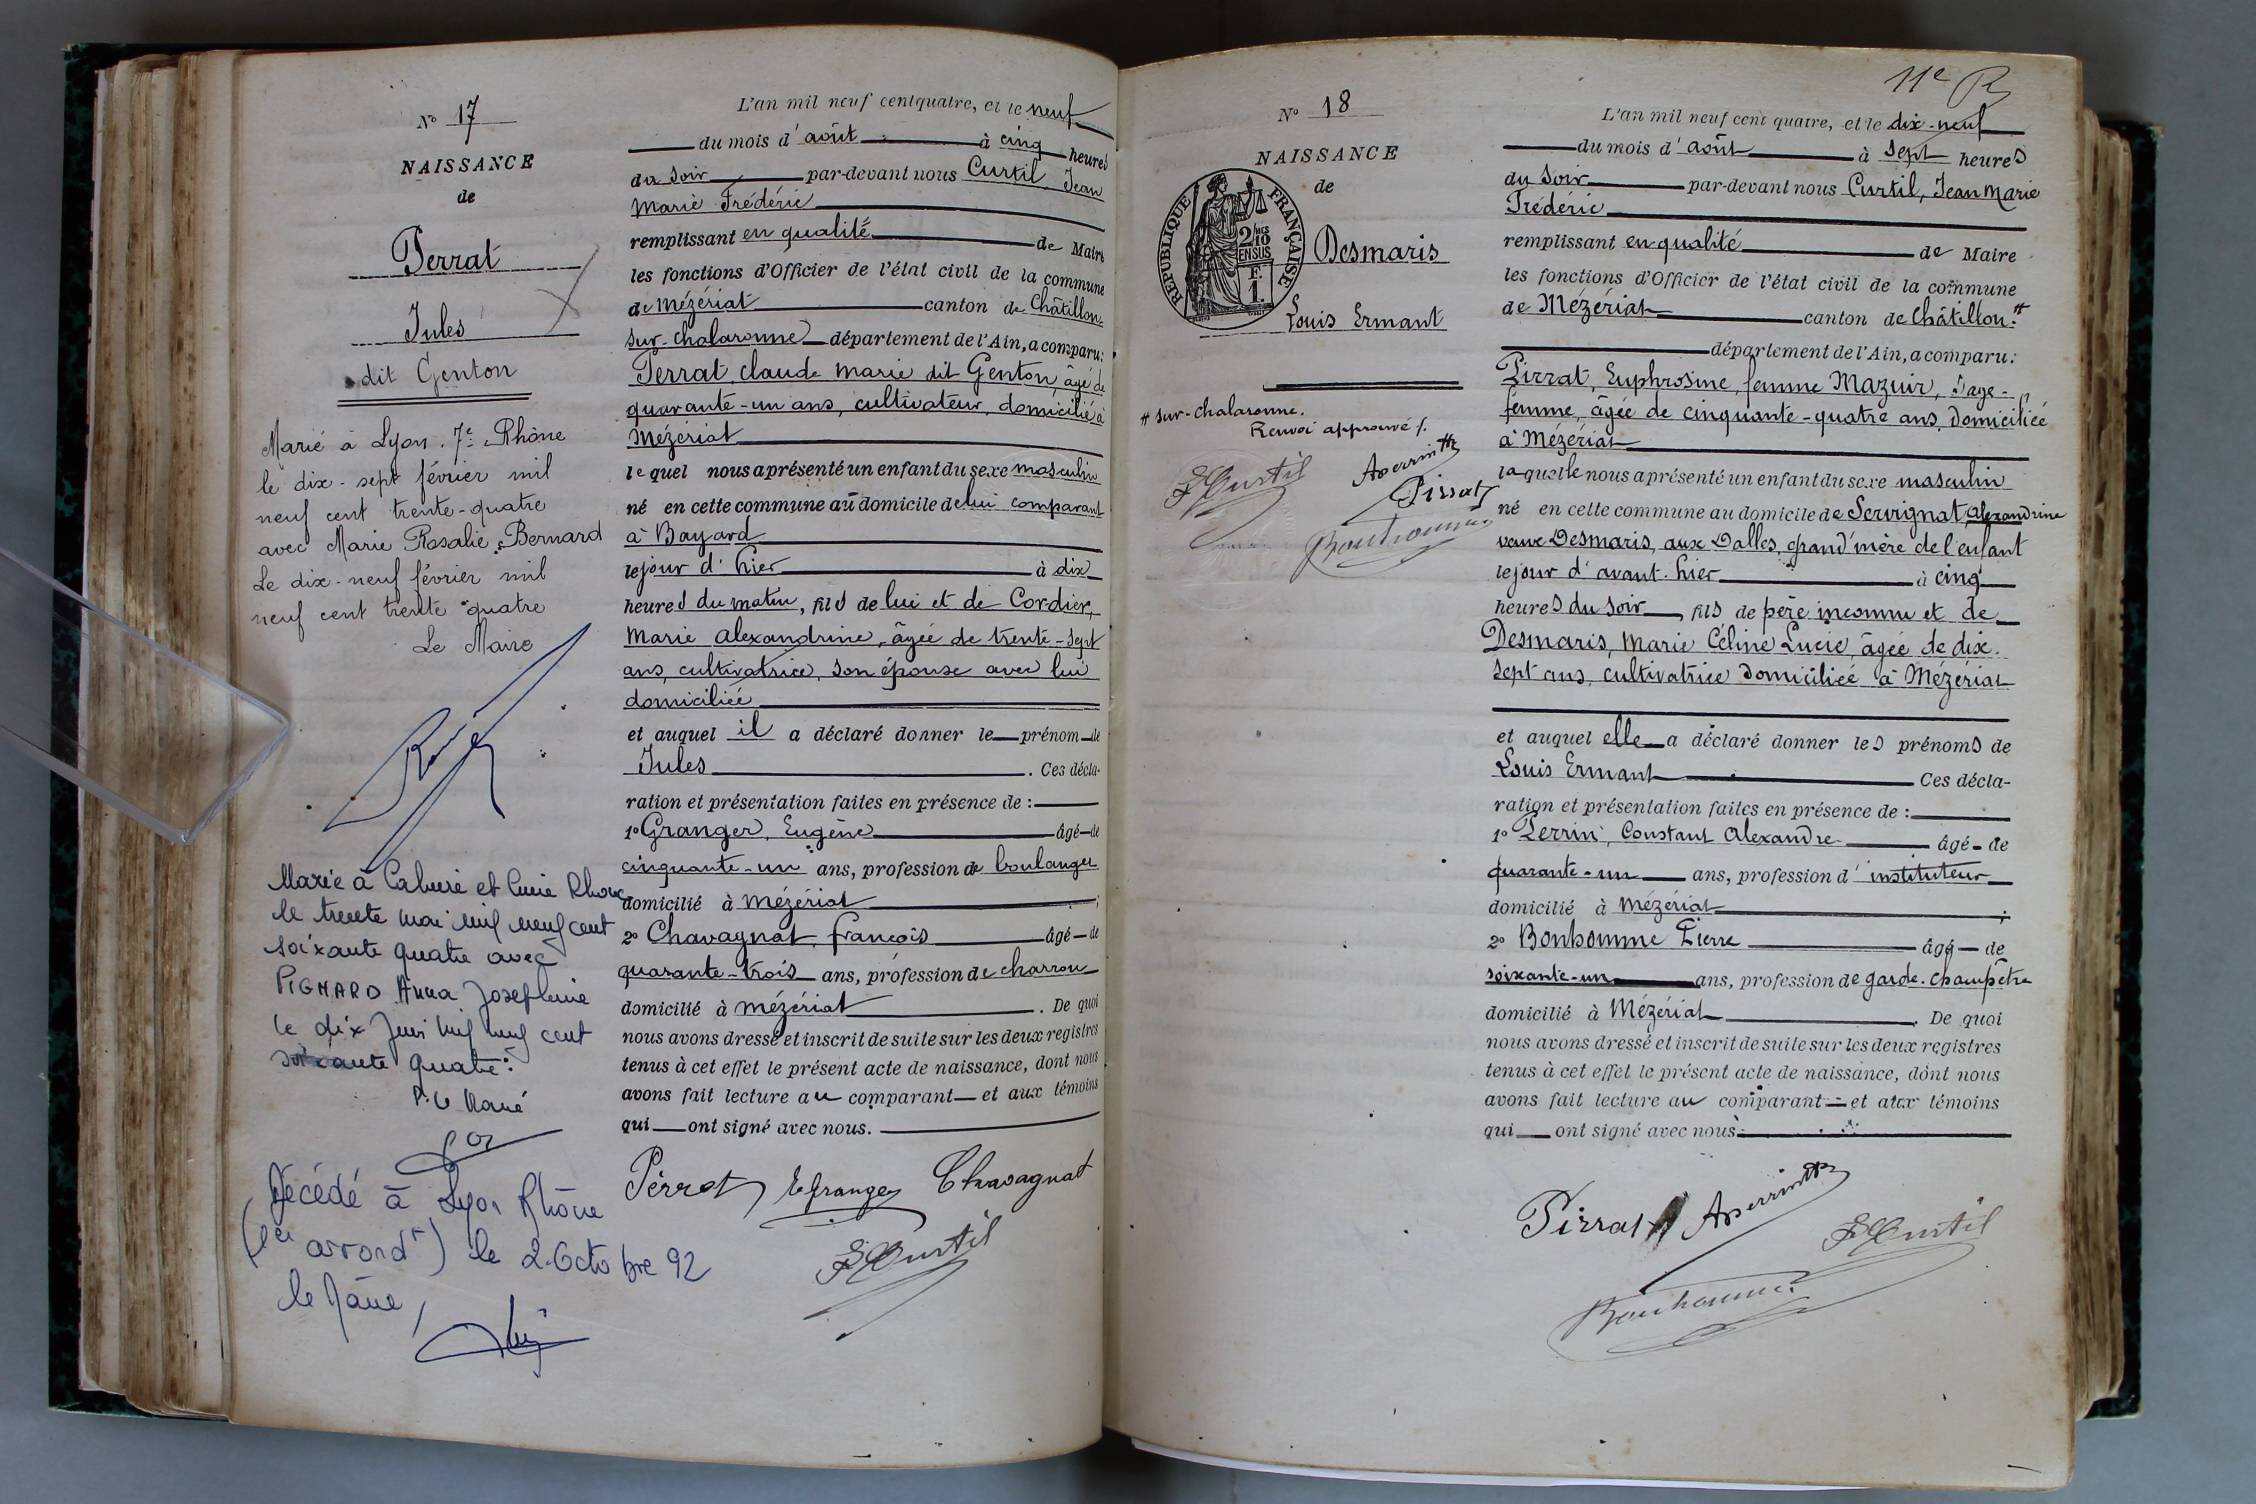 N° 17
NAISSANCE
de
Perrat
Jules
dit Genton
Marié à Lyon. 7e Rhône
le dix-sept février mil
neuf cent trente-quatre
avec Marie Rosalie Bernard
Le dix-neuf février mil
neuf cent trente quatre
Le Maire
Marié à Caluire et Cuire Rhône
le trente mai mil neuf cent
soixante quatre avec
PIGNARD Anna Josephine
le dix Juin mil neuf cent
soixante quatre.
Décédé à Lyon Rhône
(1er arrondt) le 2 Octobre 92
le Maire,
L'an mil neuf cent quatre, et le neuf
du mois d'août à cinq heures
du soir par-devant nous Curtil, Jean
Marie Frédéric
remplissant en qualité de Maire
les fonctions d'Officier de l'état civil de la commune
de Mézériat canton de Châtillon-
sur-chalaronne département de l'Ain, a comparu:
Perrat, claude marie dit Genton, âgé de
quarante-un ans, cultivateur, domicilié à
Mézériat
lequel nous a présenté un enfant du sexe masculin
né en cette commune au domicile de lui comparant
à Bayard
le jour d'hier à dix
heures du matin, fils de lui et de Cordier,
Marie alexandrine, âgée de trente-sept
ans, cultivatrice, son épouse avec lui
domiciliée
et auquel il a déclaré donner le prénom de
Jules . Ces décla-
ration et présentation faites en présence de :
1° Granger, Eugène âgé de
cinquante-un ans, profession de boulanger
domicilié à Mézériat ;
2° Chavagnat, françois âgé de
quarante-trois ans, profession de charron
domicilié à Mézériat . De quoi
nous avons dressé et inscrit de suite sur les deux registres
tenus à cet effet le présent acte de naissance, dont nous
avons fait lecture au comparant et aux témoins
qui ont signé avec nous.
Perrat Egranger Chavagnat
F Curtil
11e R
N° 18
NAISSANCE
de
REPUBLIQUE FRANÇAISE
2/10 EN SUS
F.
1.
Desmaris
Louis Ermant
# sur-chalaronne.
Renvoi approuvé ./.
F Curtil Aperrin
Pirrat
Bonhomme
L'an mil neuf cent quatre, et le dix-neuf
du mois d'août à sept heures
du soir par-devant nous Curtil, Jean Marie
Frédéric
remplissant en qualité de Maire
les fonctions d'Officier de l'état civil de la commune
de Mézériat canton de Châtillon-#
département de l'Ain, a comparu:
Pirrat, Euphrosine, femme Mazuir, Sage-
femme, âgée de cinquante-quatre ans, domiciliée
à Mézériat
laquelle nous a présenté un enfant du sexe masculin
né en cette commune au domicile de Servignat, alexandrine
veuve Desmaris, aux Dalles, grand'mère de l'enfant
le jour d'avant-hier à cinq
heures du soir, fils de père inconnu et de
Desmaris, Marie Céline Lucie, âgée de dix-
sept ans, cultivatrice domiciliée à Mézériat
et auquel elle a déclaré donner les prénoms de
Louis Ermant Ces décla-
ration et présentation faites en présence de :
1° Perrin, Constant Alexandre âgé de
quarante-un ans, profession d'instituteur
domicilié à Mézériat ;
2° Bonhomme Pierre âgé de
soixante-un ans, profession de garde-champêtre
domicilié à Mézériat . De quoi
nous avons dressé et inscrit de suite sur les deux registres
tenus à cet effet le présent acte de naissance, dont nous
avons fait lecture au comparant et aux témoins
qui ont signé avec nous.
Pirrat Aperrin
F Curtil
Bonhomme